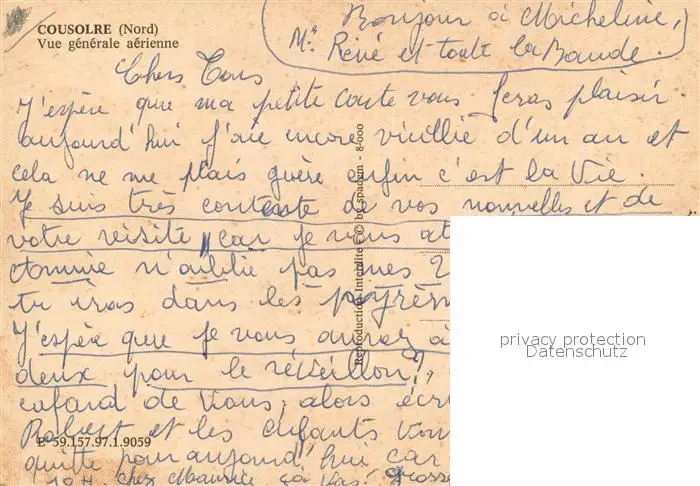 COUSOLRE (Nord)
Vue générale aérienne
Bonjour à Micheline,
Mr René et toute la Bande.
Chers Tous
J'espère que ma petite carte vous feras plaisir.
aujourd'hui j'aie encore vieillié d'un an et
cela ne me plais guère enfin c'est la Vie.
Je suis très contente de vos nouvelles et de
votre visite, car je vous at
n'oublie pas mes 2
tu iras dans les
J'espère que je vous aurez à
deux pour le réveillon?,
cafard de Vous, alors écri
Robert et les enfants vont
quitte pour aujourd'hui car
chez Maurice ça Vas. grosse
E 59.157.97.1.9059
Reproduction Interdite - © by spadem - 8-000
privacy protection
Datenschutz